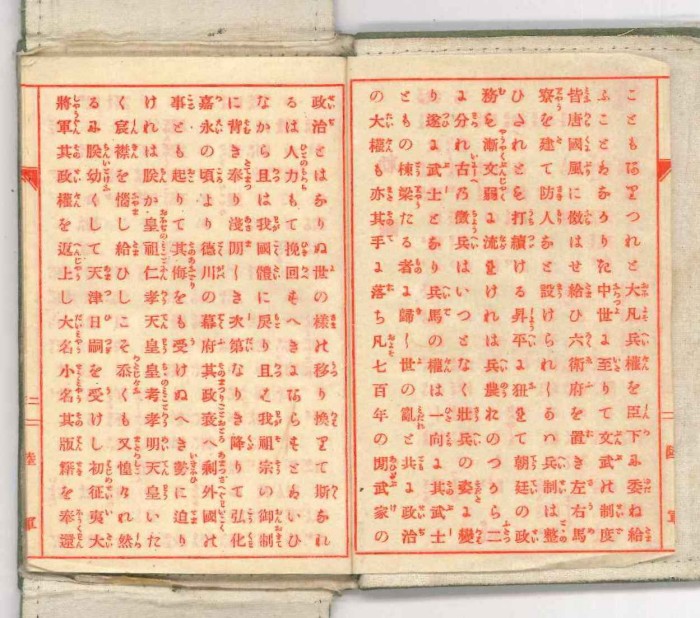 こともありつれと大凡兵權を臣下に委ね給
ふことはなかりき中世に至りて文武の制度
皆唐國風に傚はせ給ひ六衛府を置き左右馬
寮を建て防人なと設けられしかは兵制は整
ひたれとも打續ける昇平に狃れて朝廷の政
務も漸文弱に流れけれは兵農おのつから二
に分れ古の徴兵はいつとなく壯兵の姿に變
り遂に武士となり兵馬の權は一向に其武士
ともの棟梁たる者に歸し世の亂と共に政治
の大權も亦其手に落ち凡七百年の間武家の
政治とはなりぬ世の樣の移り換りて斯なれ
るは人力もて挽回すへきにあらすとはいひ
なから且は我國體に戻り且は我祖宗の御制
に背き奉り淺間しき次第なりき降りて弘化
嘉永の頃より德川の幕府其政衰へ剩外國の
事とも起りて其侮をも受けぬへき勢に迫り
けれは朕か皇祖仁孝天皇皇考孝明天皇いた
く宸襟を惱し給ひしこそ忝くも又惶けれ然
るに朕幼くして天津日嗣を受けし初征夷大
將軍其政權を返上し大名小名其版籍を奉還
二
陸軍